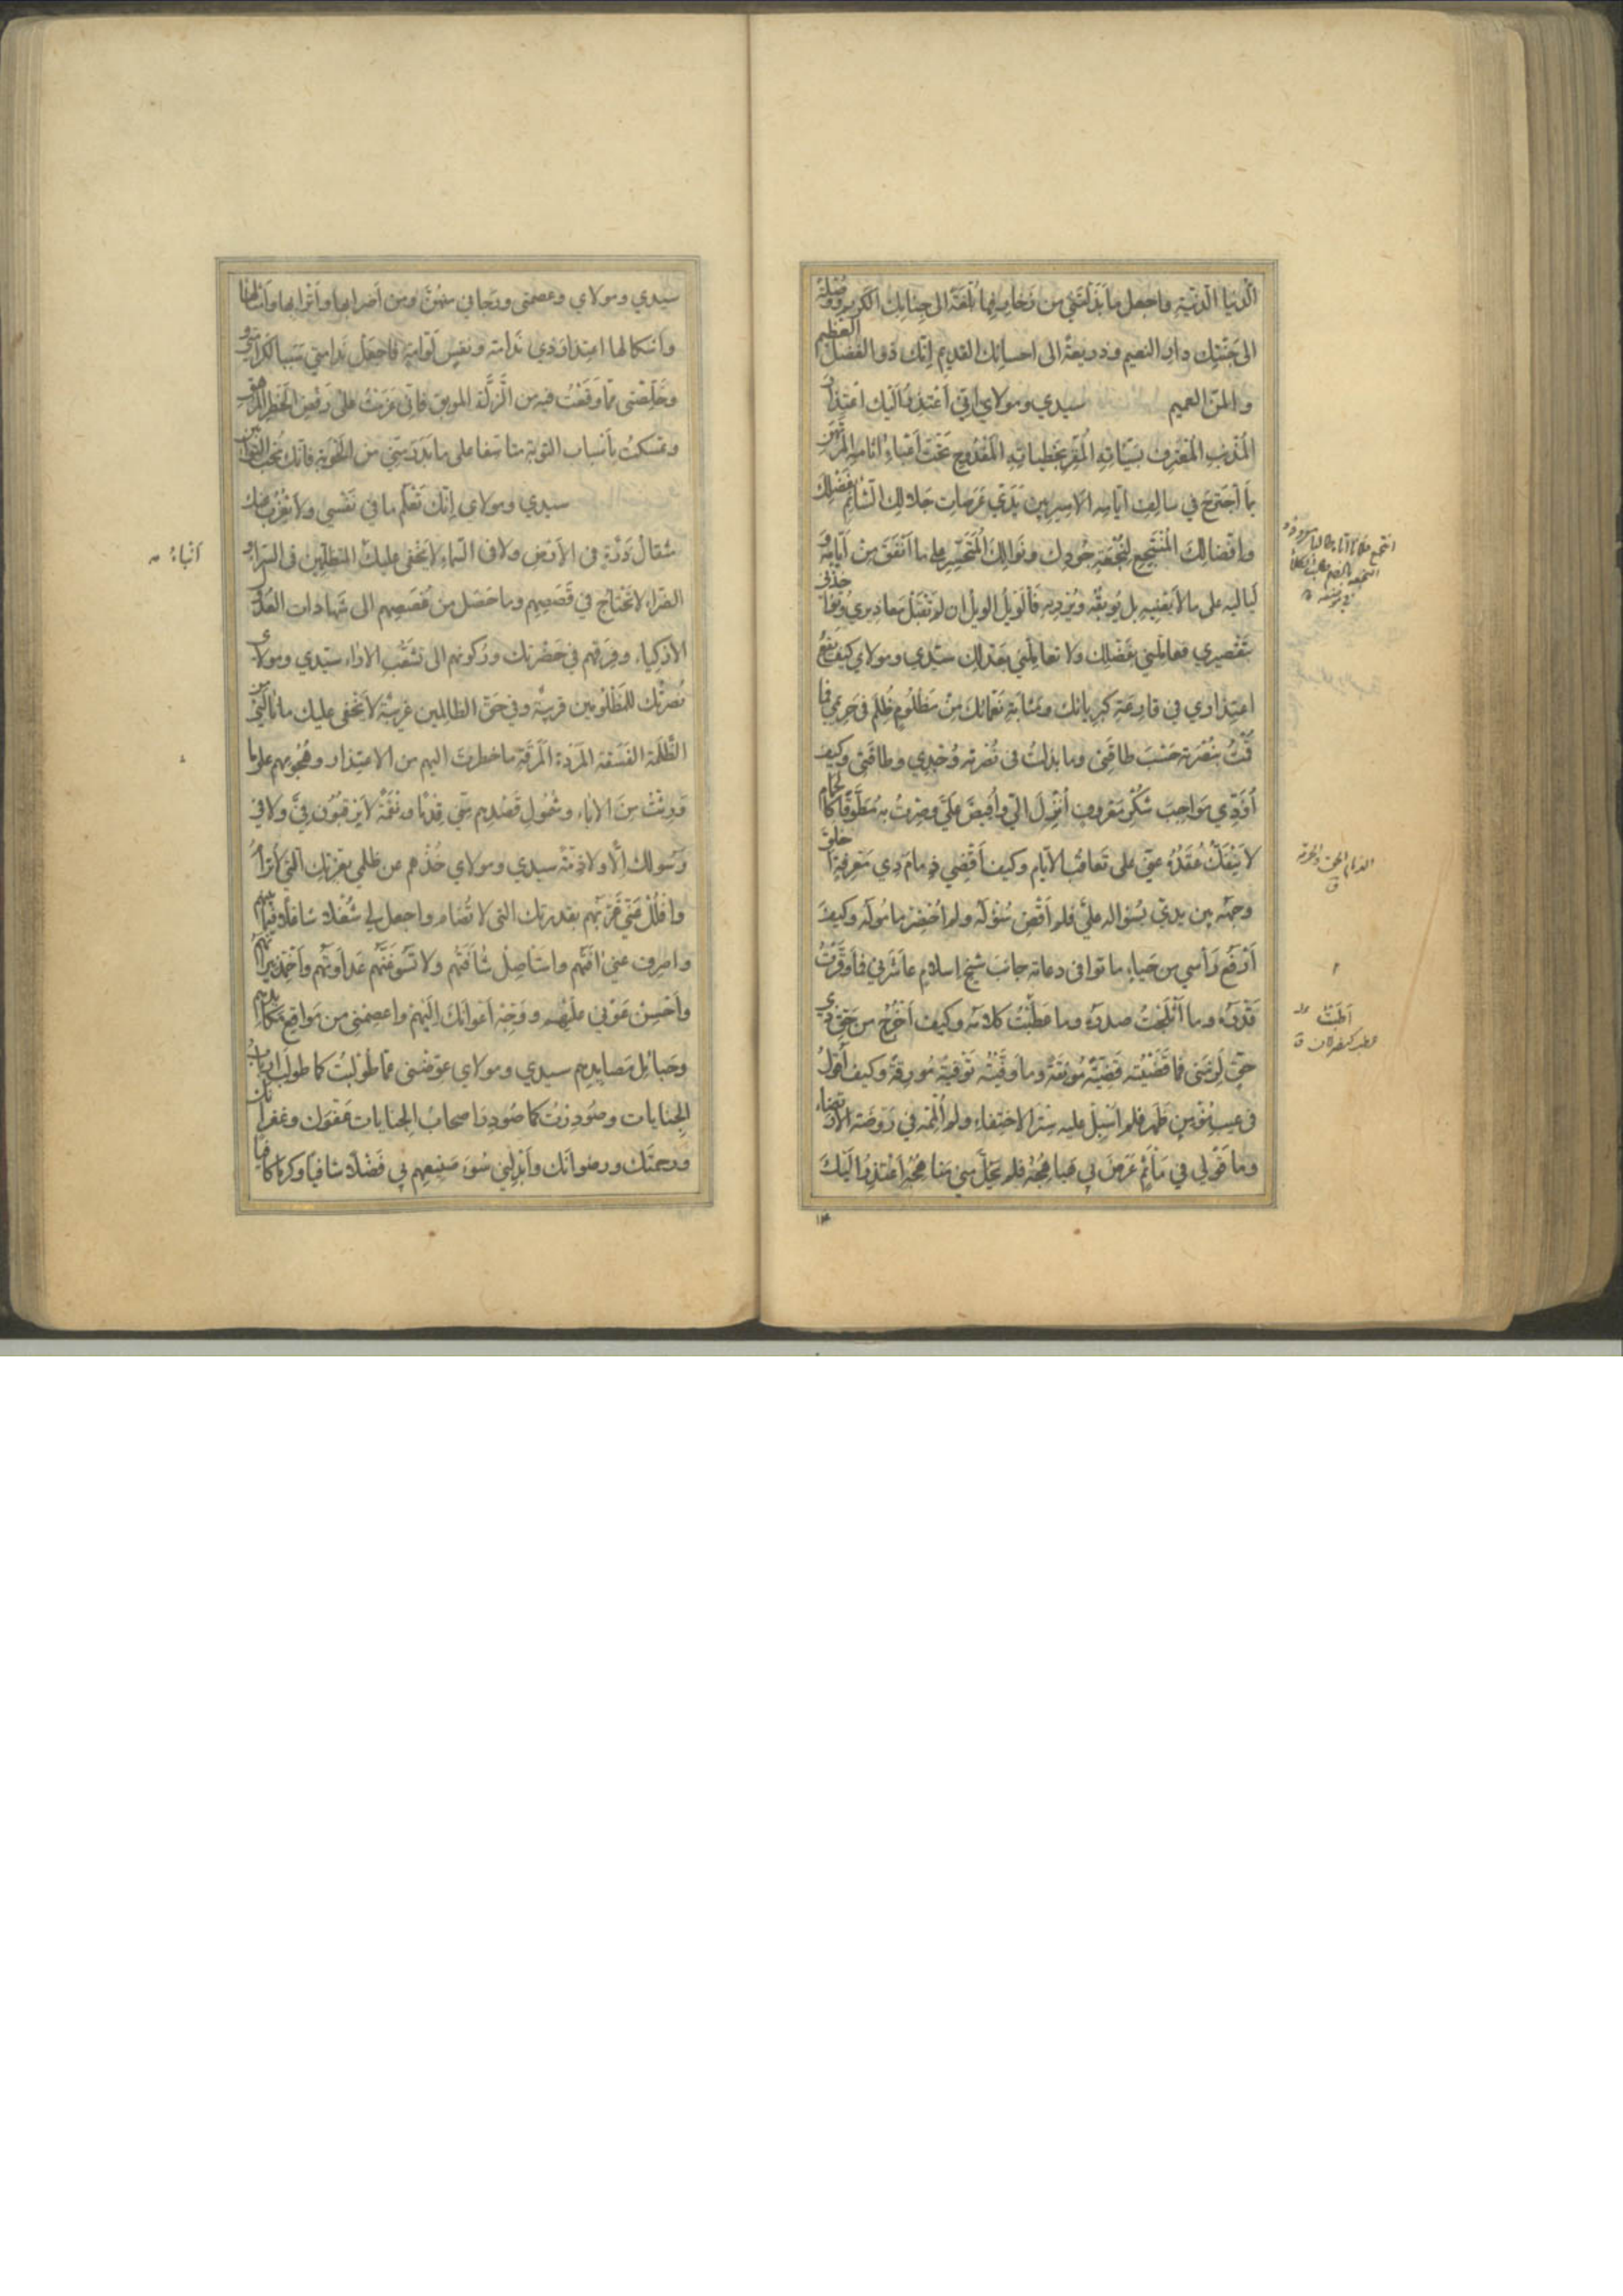 الدنيا الدنية واجعل ما بذلتني من زخارفها بلغة الى جنابك الكريم ووصلة
الى جنتك دار النعيم وذريعة الى احسانك القديم انك ذو الفضل العظيم
والمن العميم سيدي ومولاي اني اعتذر اليك اعتذار
المذنب المعترف بسيئاته المقر بخطيئاته المقدوح تحت اعباء اثامه المرتهن
بما اجترح في سالف ايامه الاسير بين يدي عرصات جلالك الشائم فضلك
وافضالك المنتجع لنجعة جودك ونوالك المتحسر على ما انفق من ايامه و
لياليه على ما لا يغنيه بل يوبقه ويرديه فالويل الويل ان لم تقبل معاذيري وتؤاخذني
بتقصيري فعاملني بفضلك ولا تعاملني بعدلك سيدي ومولاي كيف ينفع
اعتذاري في قارعة كبريائك ومثابة نعمائك من مظلوم ظلم في حرمي فما
قمت بنصرته حسب طاقتي وما بذلت في نصرته وجدي وطاقتي وكيف
اؤدي مواجب شكر معروف انزل الي وافيض علي وصرت به مطوقا كالحمام
لا ينفك عقده عني على تعاقب الايام وكيف اقضي ذمام ذي معرفة اخلق
وجهه بين يدي بسؤاله علي فلم اقض سؤله ولم احضر ماموله وكيف
ارفع رأسي من حياء ما توانى دعاته جانب شيخ اسلام عاشرني فما وقرت
قدره وما اثلجت صدره وما عظمت كلامه وكيف اخرج من حق ذي
حق لزمني فما قضيته قضية مونقة وما وفيته توفية مورقة وكيف اقول
في عيب مؤمن ظهر فلم اسبل عليه ستر الاختفاء ولم انمه في روضة الارتضاء
وما قولي في مأثم عرض لي هباء هجنه فلم يحل مني هجره اعتذر اليك
الذمام الحق والحرمة
ق
سيدي ومولاي وعصمتي ورجائي منهن ومن اضرابها واترابها وامثالها
واشكالها اعتذار ذي ندامة ونفس لوامة فاجعل ندامتي سببا لكرامتي و
وخلصني مما وقعت فيه من الزلة الموبق فاني عزمت على رفض الخطر المزهق
وتمسكت باسباب التوبة متاسفا على ما بدر مني من الحوبة فانك تحب التوابين
سيدي ومولاي انك تعلم ما في نفسي ولا يعزب عنك
مثقال ذرة في الارض ولا في السماء لا يخفى عليك المتظلمين في السراء و
الضراء لا تحتاج في قصصهم وما حصل من غصصهم الى شهادات العدل
الازكياء وفرقهم في حضرتك وركونهم الى تشعب الاراء سيدي ومولاي
نصرتك للمظلومين قريبة وفي حق الظالمين غريبة لا يخفى عليك ما نالني من
الظلمة الفسقة المردة المرقة ما خطرت اليهم من الاعتذار وهجومهم على ما
ورثت من الاباء وشمول قصدهم مني قدما ونقمة لا يرقبون في ولا في
رسولك الا ولا ذمة سيدي ومولاي خذهم عن ظلمي بعزتك التي لا ترام
وافلل عني حربهم بقدرتك التي لا تضام واجعل لي شغلا شاغلا فيما
واصرف عني افتهم واستأصل شأفتهم ولا تسوغنهم عداوتهم واخمد نيرانهم
واحسن عوني عليهم ووجه اعوانك اليهم واعصمني من مواقع مكائدهم
وحبائل مصايدهم سيدي ومولاي عوضني مما طولبت كما طولب ارباب
الجنايات وصودرت كما صودر اصحاب الجنايات عفوك وغفرانك
ورحمتك ورضوانك وابدلني سوء صنيعهم بي فضلا شافيا وكرما كافيا
انباء